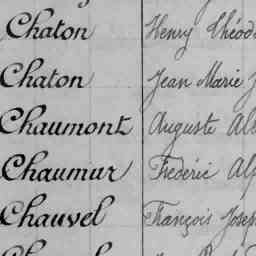 Chaton Henry Théod
Chaton Jean Marie J
Chaumont Auguste Ale
Chaumur Frédéric Alp
Chauvel François Josep